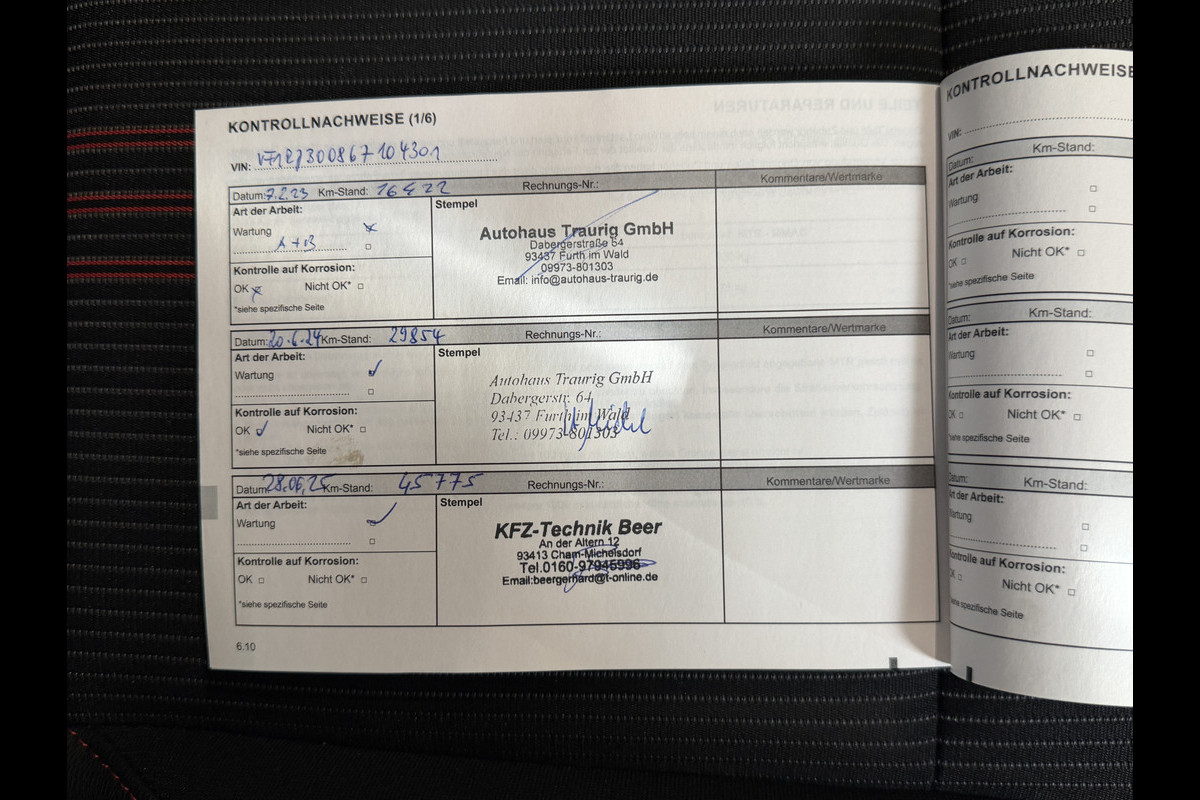 KONTROLLNACHWEISE (1/6)
VIN:
Datum: 7.2.23 Km-Stand: 16422 Rechnungs-Nr.: Kommentare/Wertmarke
Art der Arbeit:
Wartung
A+B
Kontrolle auf Korrosion:
OK Nicht OK*
*siehe spezifische Seite
Stempel
Autohaus Traurig GmbH
Dabergerstraße 64
93437 Furth im Wald
09973-801303
Email: info@autohaus-traurig.de
Datum: 20.6.24 Km-Stand: 29854 Rechnungs-Nr.: Kommentare/Wertmarke
Art der Arbeit:
Wartung
Kontrolle auf Korrosion:
OK Nicht OK*
*siehe spezifische Seite
Stempel
Autohaus Traurig GmbH
Dabergerstr. 64
93437 Furth im Wald
Tel.: 09973-801303
Datum: 28.06.25 Km-Stand: 45775 Rechnungs-Nr.: Kommentare/Wertmarke
Art der Arbeit:
Wartung
Kontrolle auf Korrosion:
OK Nicht OK*
*siehe spezifische Seite
Stempel
KFZ-Technik Beer
An der Altern 12
93413 Cham-Michelsdorf
Tel.0160-97945996
Email:beergerhard@t-online.de
6.10
KONTROLLNACHWEISE
VIN:
Datum: Km-Stand:
Art der Arbeit:
Wartung
Kontrolle auf Korrosion:
OK Nicht OK*
*siehe spezifische Seite
Datum: Km-Stand:
Art der Arbeit:
Wartung
Kontrolle auf Korrosion:
OK Nicht OK*
*siehe spezifische Seite
Datum: Km-Stand:
Art der Arbeit:
Wartung
Kontrolle auf Korrosion:
OK Nicht OK*
*siehe spezifische Seite